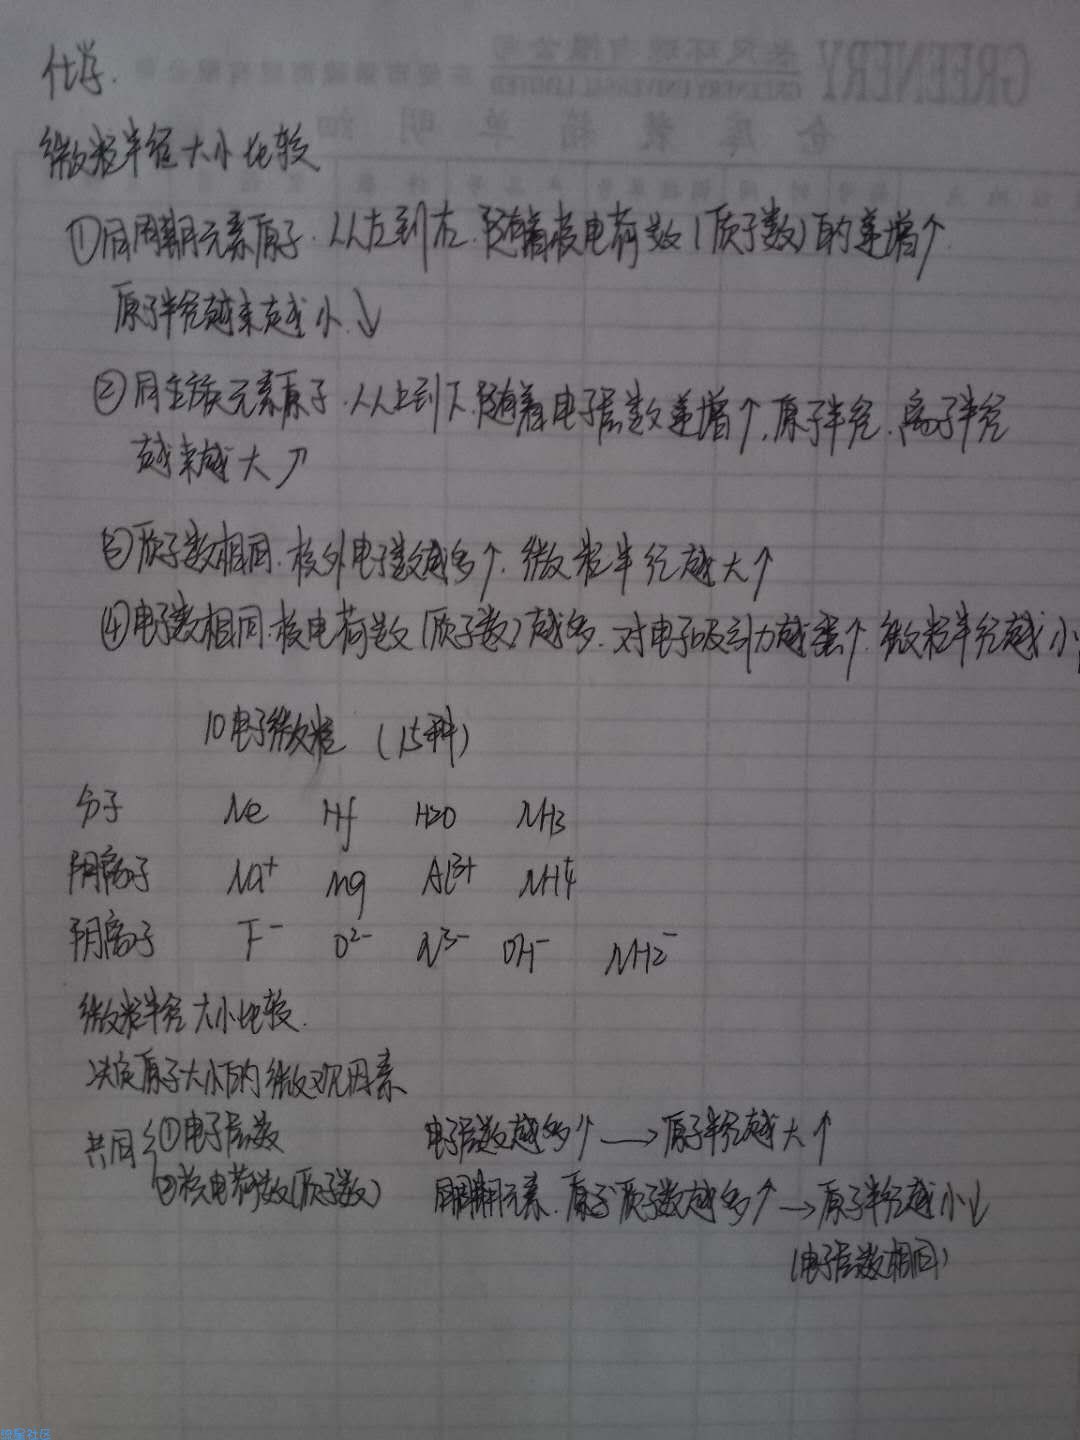 化学.
微粒半径大小比较
①同周期元素原子.从左到右.随着核电荷数(质子数)的递增↑.
原子半径越来越小.↓
②同主族元素原子.从上到下.随着电子层数递增↑.原子半径.离子半径
越来越大↗
③质子数相同.核外电子数越多↑.微粒半径越大↑
④电子数相同.核电荷数(质子数)越多.对电子吸引力越强↑.微粒半径越小↓
10电子微粒 (15种)
分子 Ne Hf H2O NH3
阳离子 Na⁺ Mg Al³⁺ NH4⁺
阴离子 F⁻ O²⁻ N³⁻ OH⁻ NH2⁻
微粒半径大小比较.
决定原子大小的微观因素
共同{①电子层数 电子层数越多↑→原子半径越大↑
②核电荷数(质子数) 同周期元素.原子质子数越多↑→原子半径越小↓
(电子层数相同)